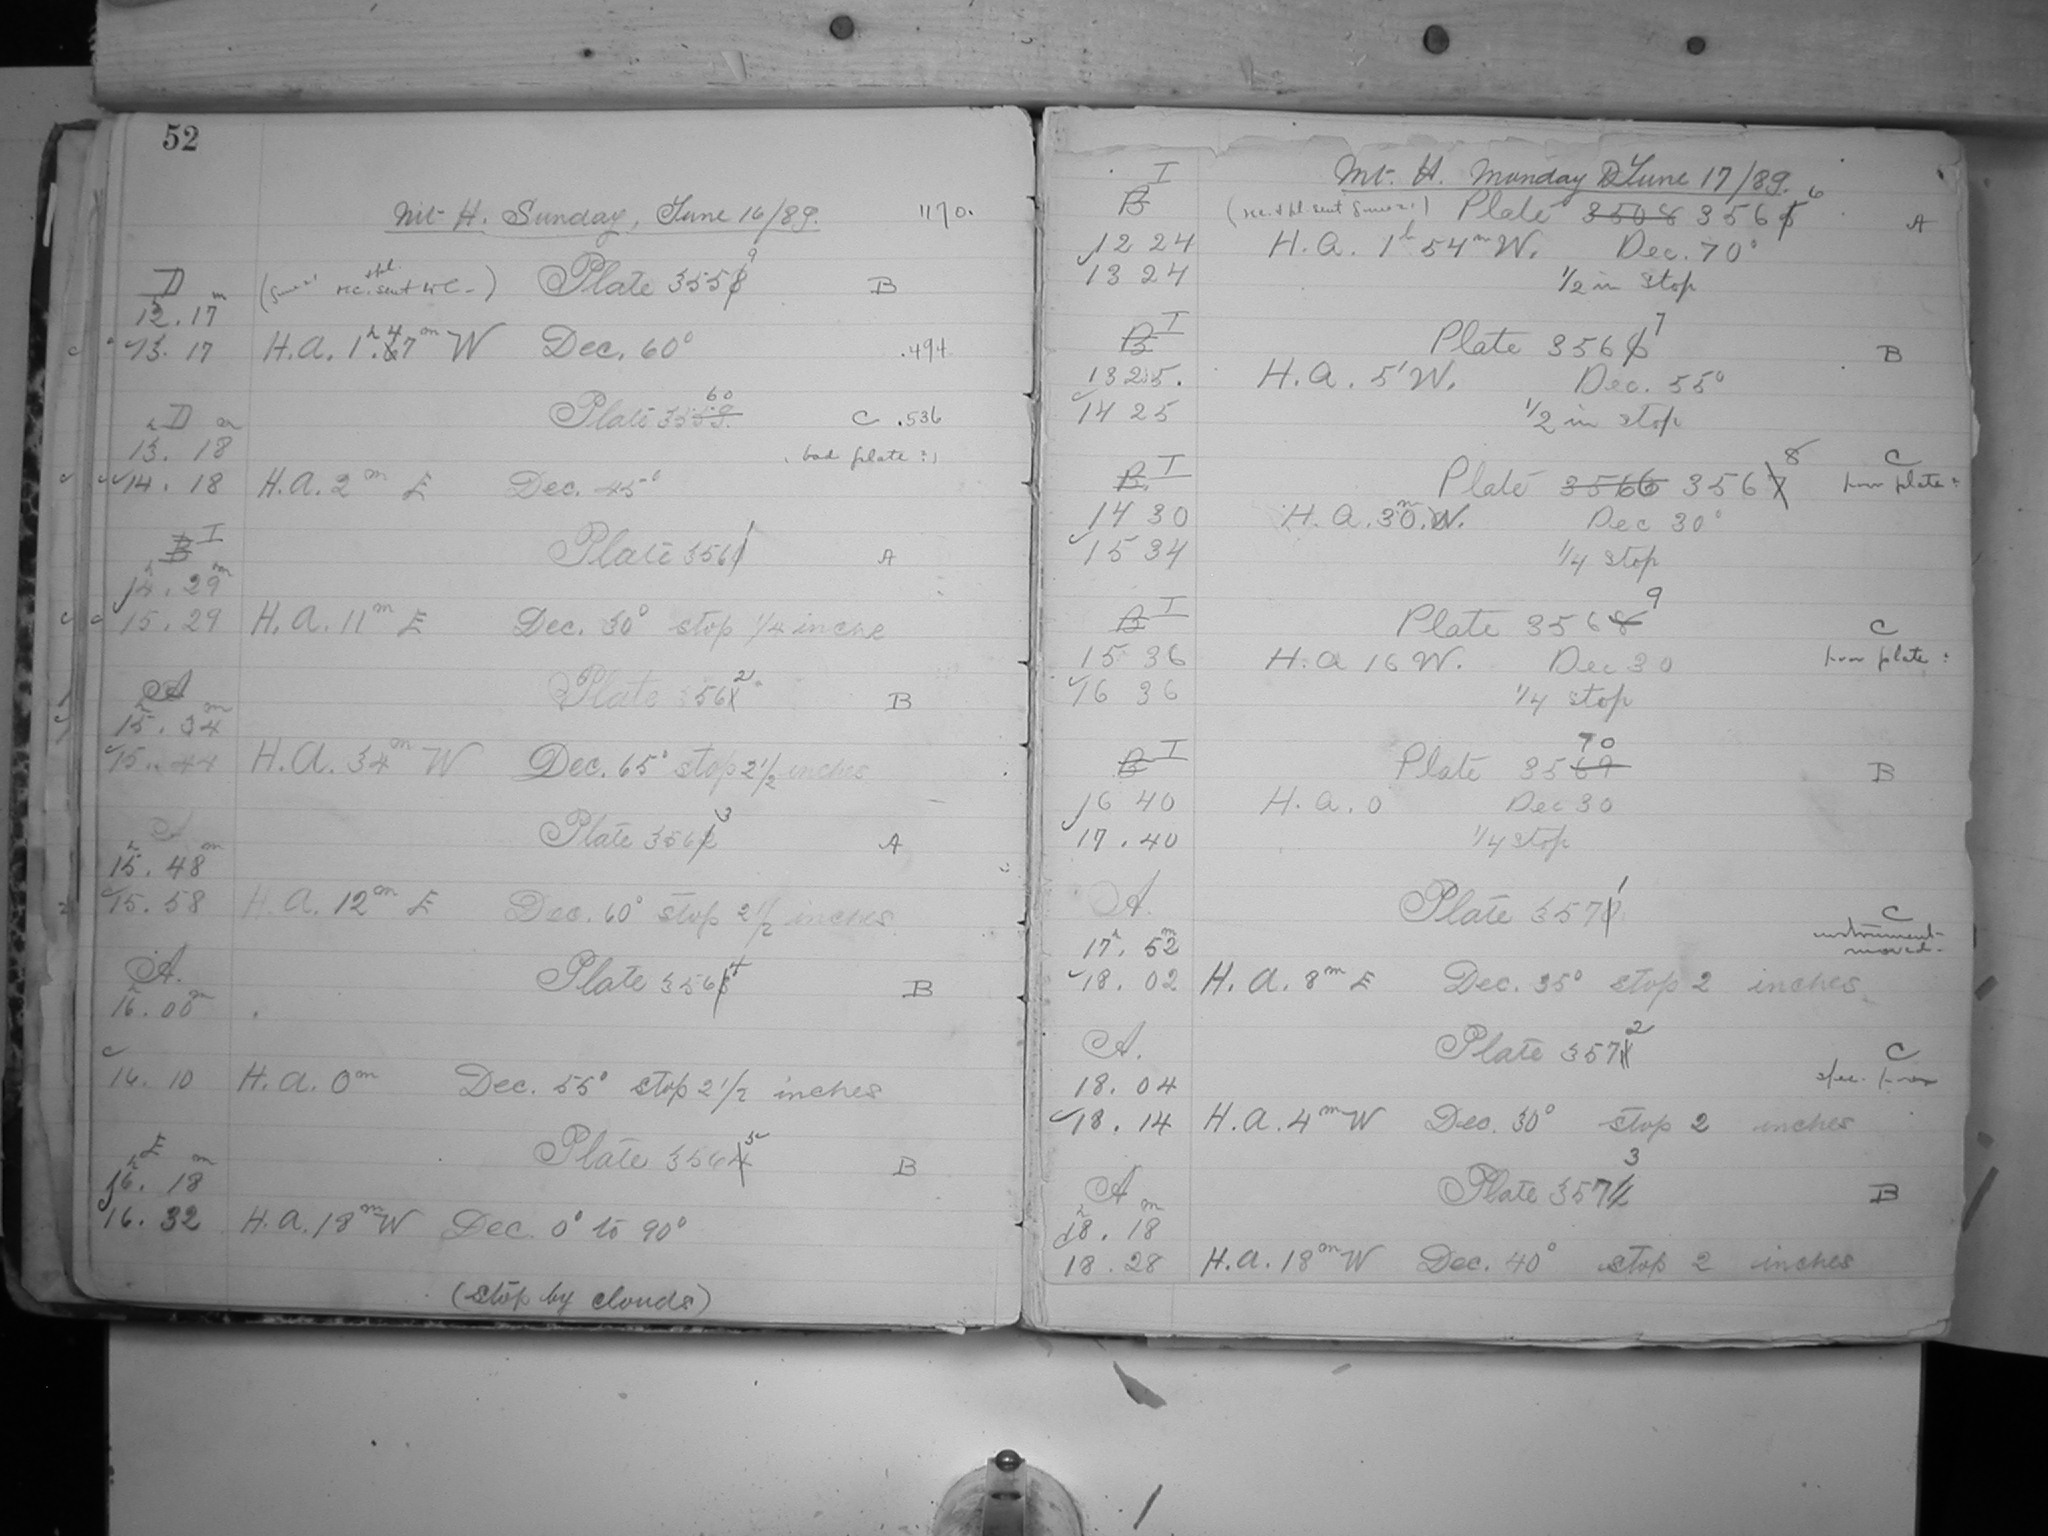 52
Mt H. Sunday, June 16/89. 1170.
D Plate 3558 9 B
(June 21 rec. + pl. sent to C-)
12h. 17m
13. 17 H.A. 1h.47m W Dec. 60° .494
D Plate 3559 60 C .536
13h. 18m (bad plate?)
14. 18 H.A. 2m E Dec. 45°
B I Plate 3561 A
14h. 29m
15. 29 H.A. 11m E Dec. 30° stop 1/4 inche
A Plate 3561 2 B
15h. 34m
15. 44 H.A. 34m W Dec. 65° stop 2 1/2 inches
A Plate 3562 3 A
15h. 48m
15. 58 H.A. 12m E Dec. 60° stop 2 1/2 inches
A. Plate 3563 4 B
16h. 00m
16. 10 H.A. 0m Dec. 55° stop 2 1/2 inches
E Plate 3564 5 B
16h. 18m
16. 32 H.A. 18m W Dec. 0° to 90°
(Stop by clouds)
Mt. H. Monday June 17/89.
B I (rec. + pl. sent June 21) Plate 3508 3565 6 A
12 24 H.A. 1h 54m W. Dec. 70°
13 24 1/2 in stop
B I Plate 3566 7 B
13 25. H.A. 5' W. Dec. 55°
14 25 1/2 in stop
B. I Plate 3566 3567 8 C
poor plate?
14 30 H.A. 30m. W. Dec 30°
15 34 1/4 stop
B I Plate 3568 9 C
15 36 H.A 16 W. Dec 30 poor plate?
16 36 1/4 stop
B I Plate 3569 70 B
16 40 H.A. 0 Dec 30
17. 40 1/4 stop
A. Plate 3570 1 C
17h. 52m instrument moved.
18. 02 H.A. 8m E Dec. 35° stop 2 inches
A. Plate 3571 2 C
18. 04 spec. poor
18. 14 H.A. 4m W Dec. 30° stop 2 inches
A Plate 3572 3 B
18h. 18m
18. 28 H.A. 18m W Dec. 40° stop 2 inches